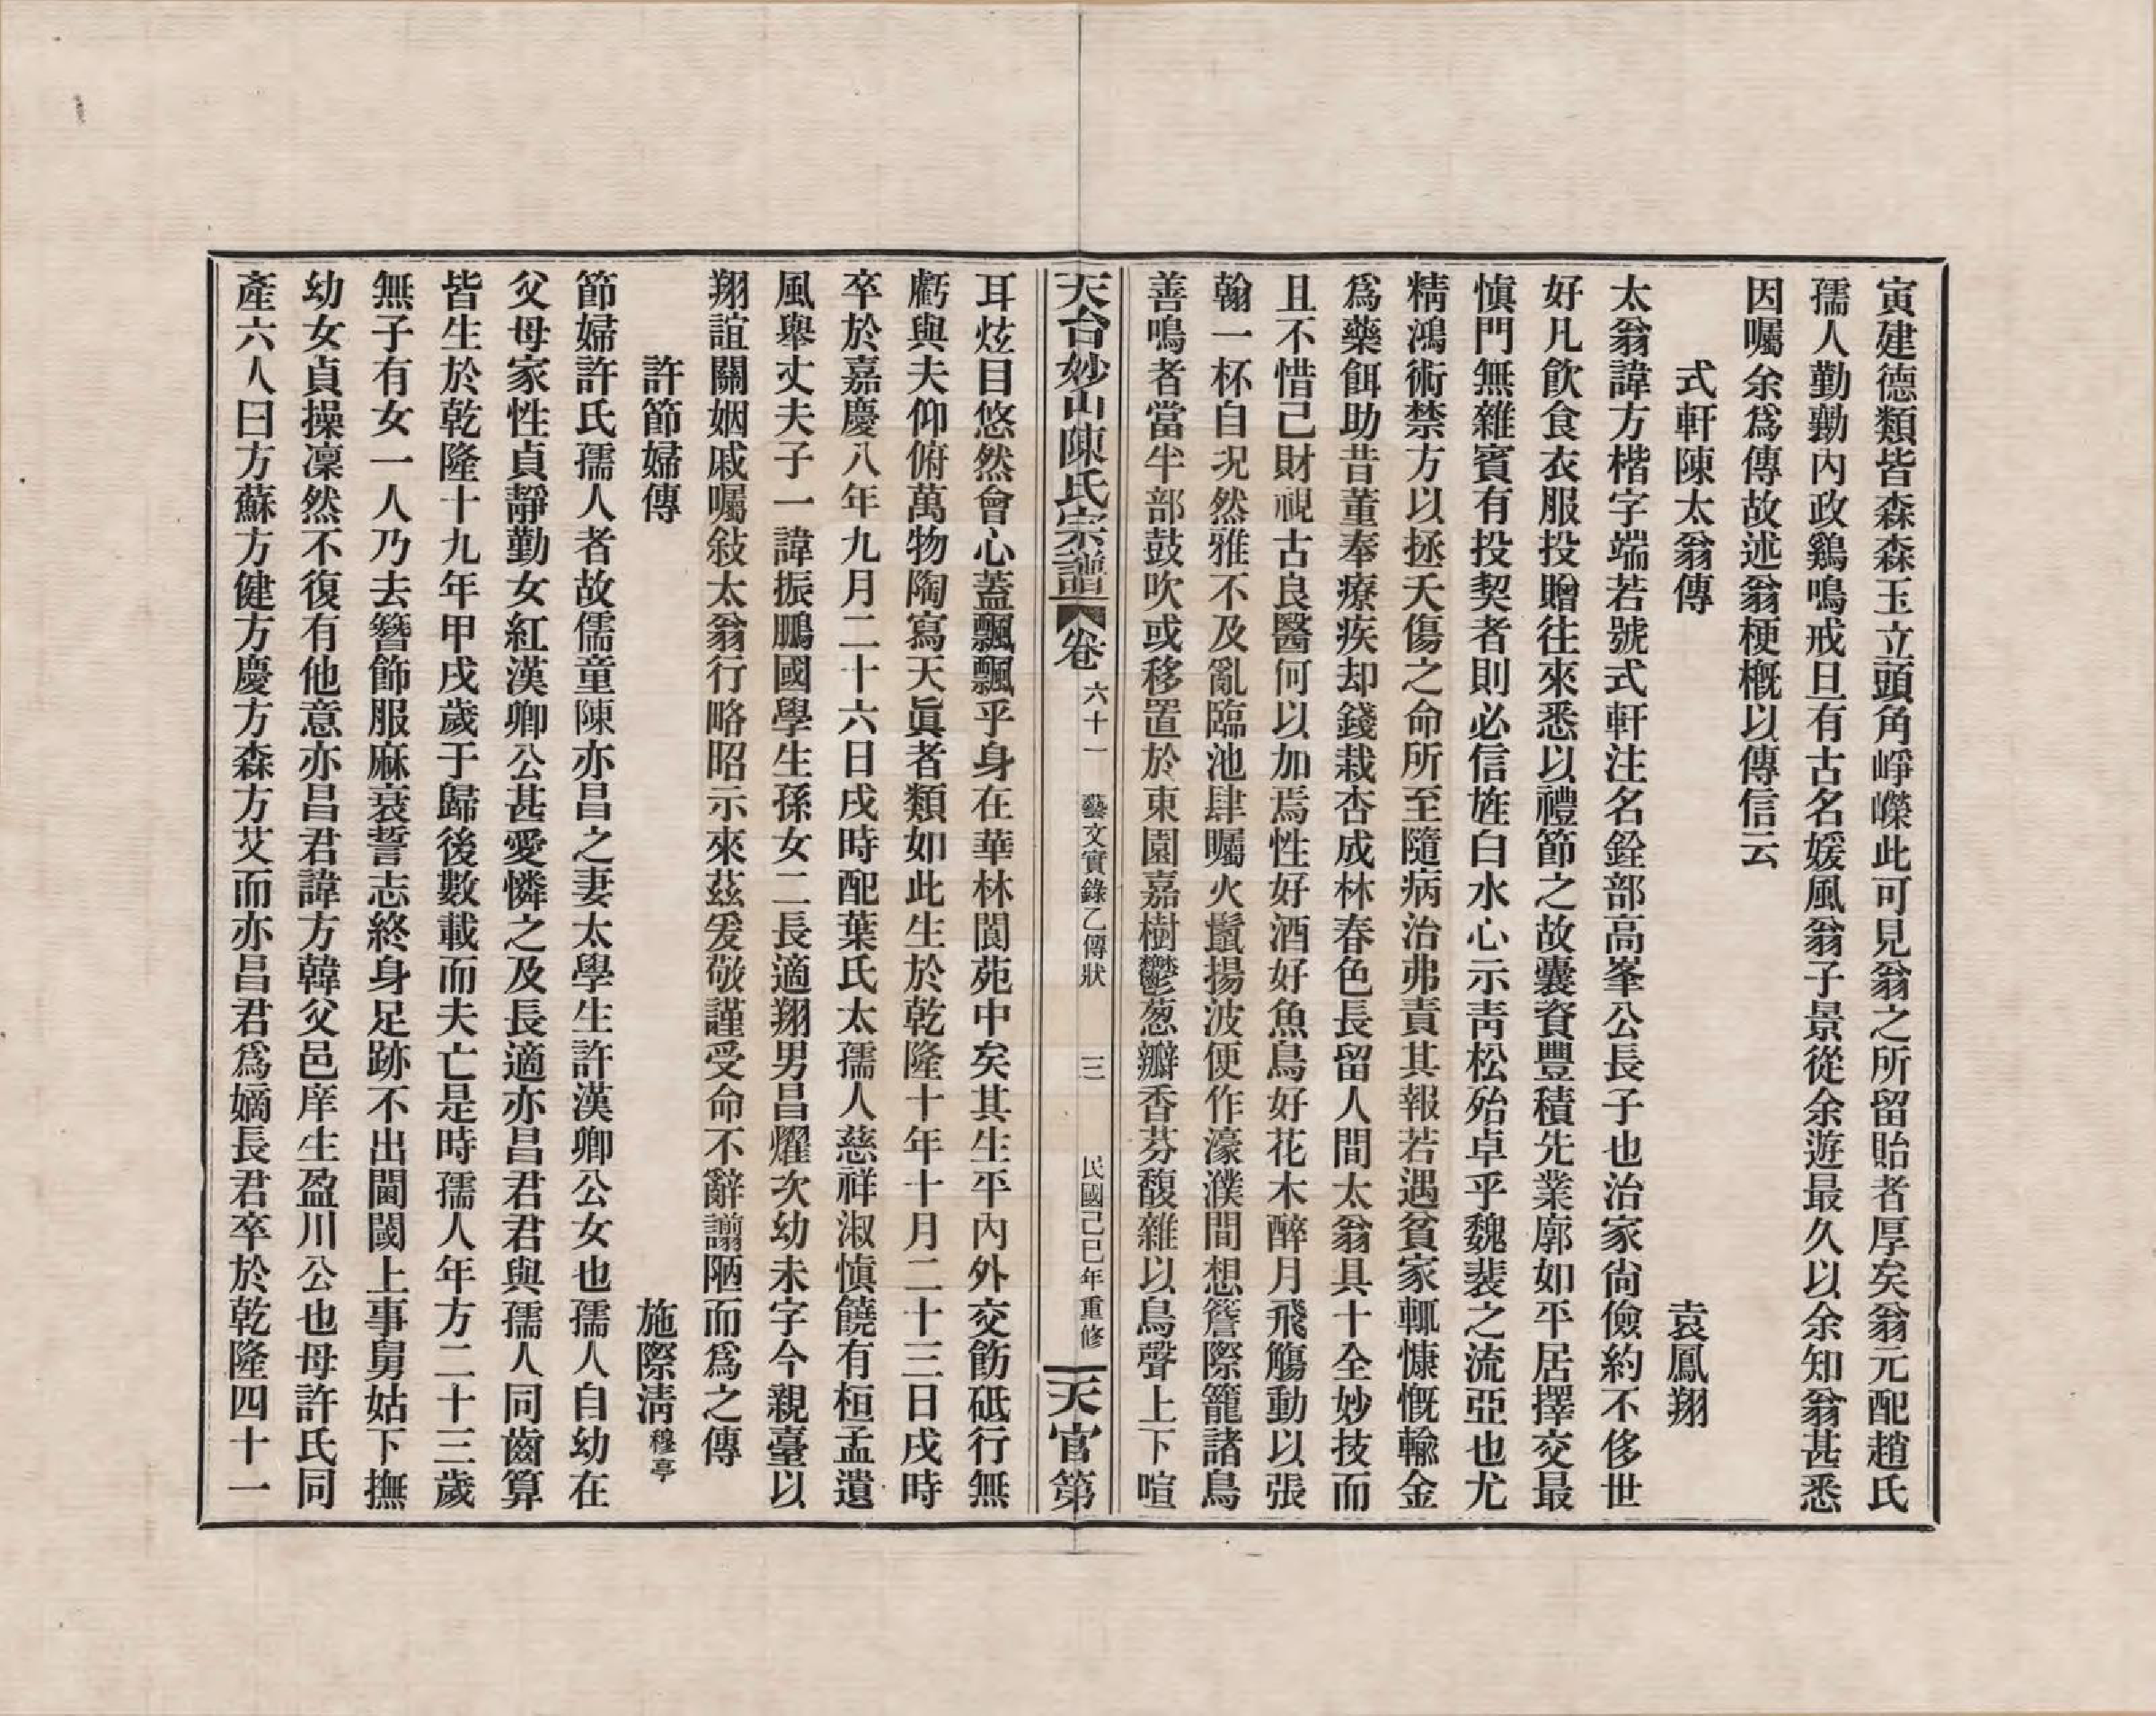 寅建德類皆森森玉立頭角崢嶸此可見翁之所留貽者厚矣翁元配趙氏
孺人勤勷內政鷄鳴戒旦有古名媛風翁子景從余遊最久以余知翁甚悉
因囑余爲傳故述翁梗槪以傳信云
式軒陳太翁傳 袁鳳翔
太翁諱方楷字端若號式軒注名銓部高峯公長子也治家尙儉約不侈世
好凡飮食衣服投贈往來悉以禮節之故囊資豐積先業廓如平居擇交最
愼門無雜賓有投契者則必信旌白水心示靑松殆卓乎魏裴之流亞也尤
精鴻術禁方以拯夭傷之命所至隨病治弗責其報若遇貧家輒慷慨輸金
爲藥餌助昔董奉療疾却錢栽杏成林春色長留人間太翁具十全妙技而
且不惜己財視古良醫何以加焉性好酒好魚鳥好花木醉月飛觴動以張
翰一杯自况然雅不及亂臨池肆矚火鬣揚波便作濠濮間想簷際籠諸鳥
善鳴者當半部鼓吹或移置於東園嘉樹鬱葱瓣香芬馥雜以鳥聲上下喧
天台妙山陳氏宗譜 卷六十一 藝文實錄乙傳狀 三 民國己巳年重修 天官第
耳炫目悠然會心蓋飄飄乎身在華林閬苑中矣其生平內外交飭砥行無
虧與夫仰俯萬物陶寫天眞者類如此生於乾隆十年十月二十三日戌時
卒於嘉慶八年九月二十六日戌時配葉氏太孺人慈祥淑愼饒有桓孟遺
風舉丈夫子一諱振鵬國學生孫女二長適翔男昌燿次幼未字今親臺以
翔誼關姻戚囑敍太翁行略昭示來茲爰敬謹受命不辭譾陋而爲之傳
許節婦傳 施際淸穆亭
節婦許氏孺人者故儒童陳亦昌之妻太學生許漢卿公女也孺人自幼在
父母家性貞靜勤女紅漢卿公甚愛憐之及長適亦昌君君與孺人同齒算
皆生於乾隆十九年甲戌歲于歸後數載而夫亡是時孺人年方二十三歲
無子有女一人乃去簪飾服麻衰誓志終身足跡不出閫閾上事舅姑下撫
幼女貞操凜然不復有他意亦昌君諱方韓父邑庠生盈川公也母許氏同
產六人曰方蘇方健方慶方森方艾而亦昌君爲嫡長君卒於乾隆四十一